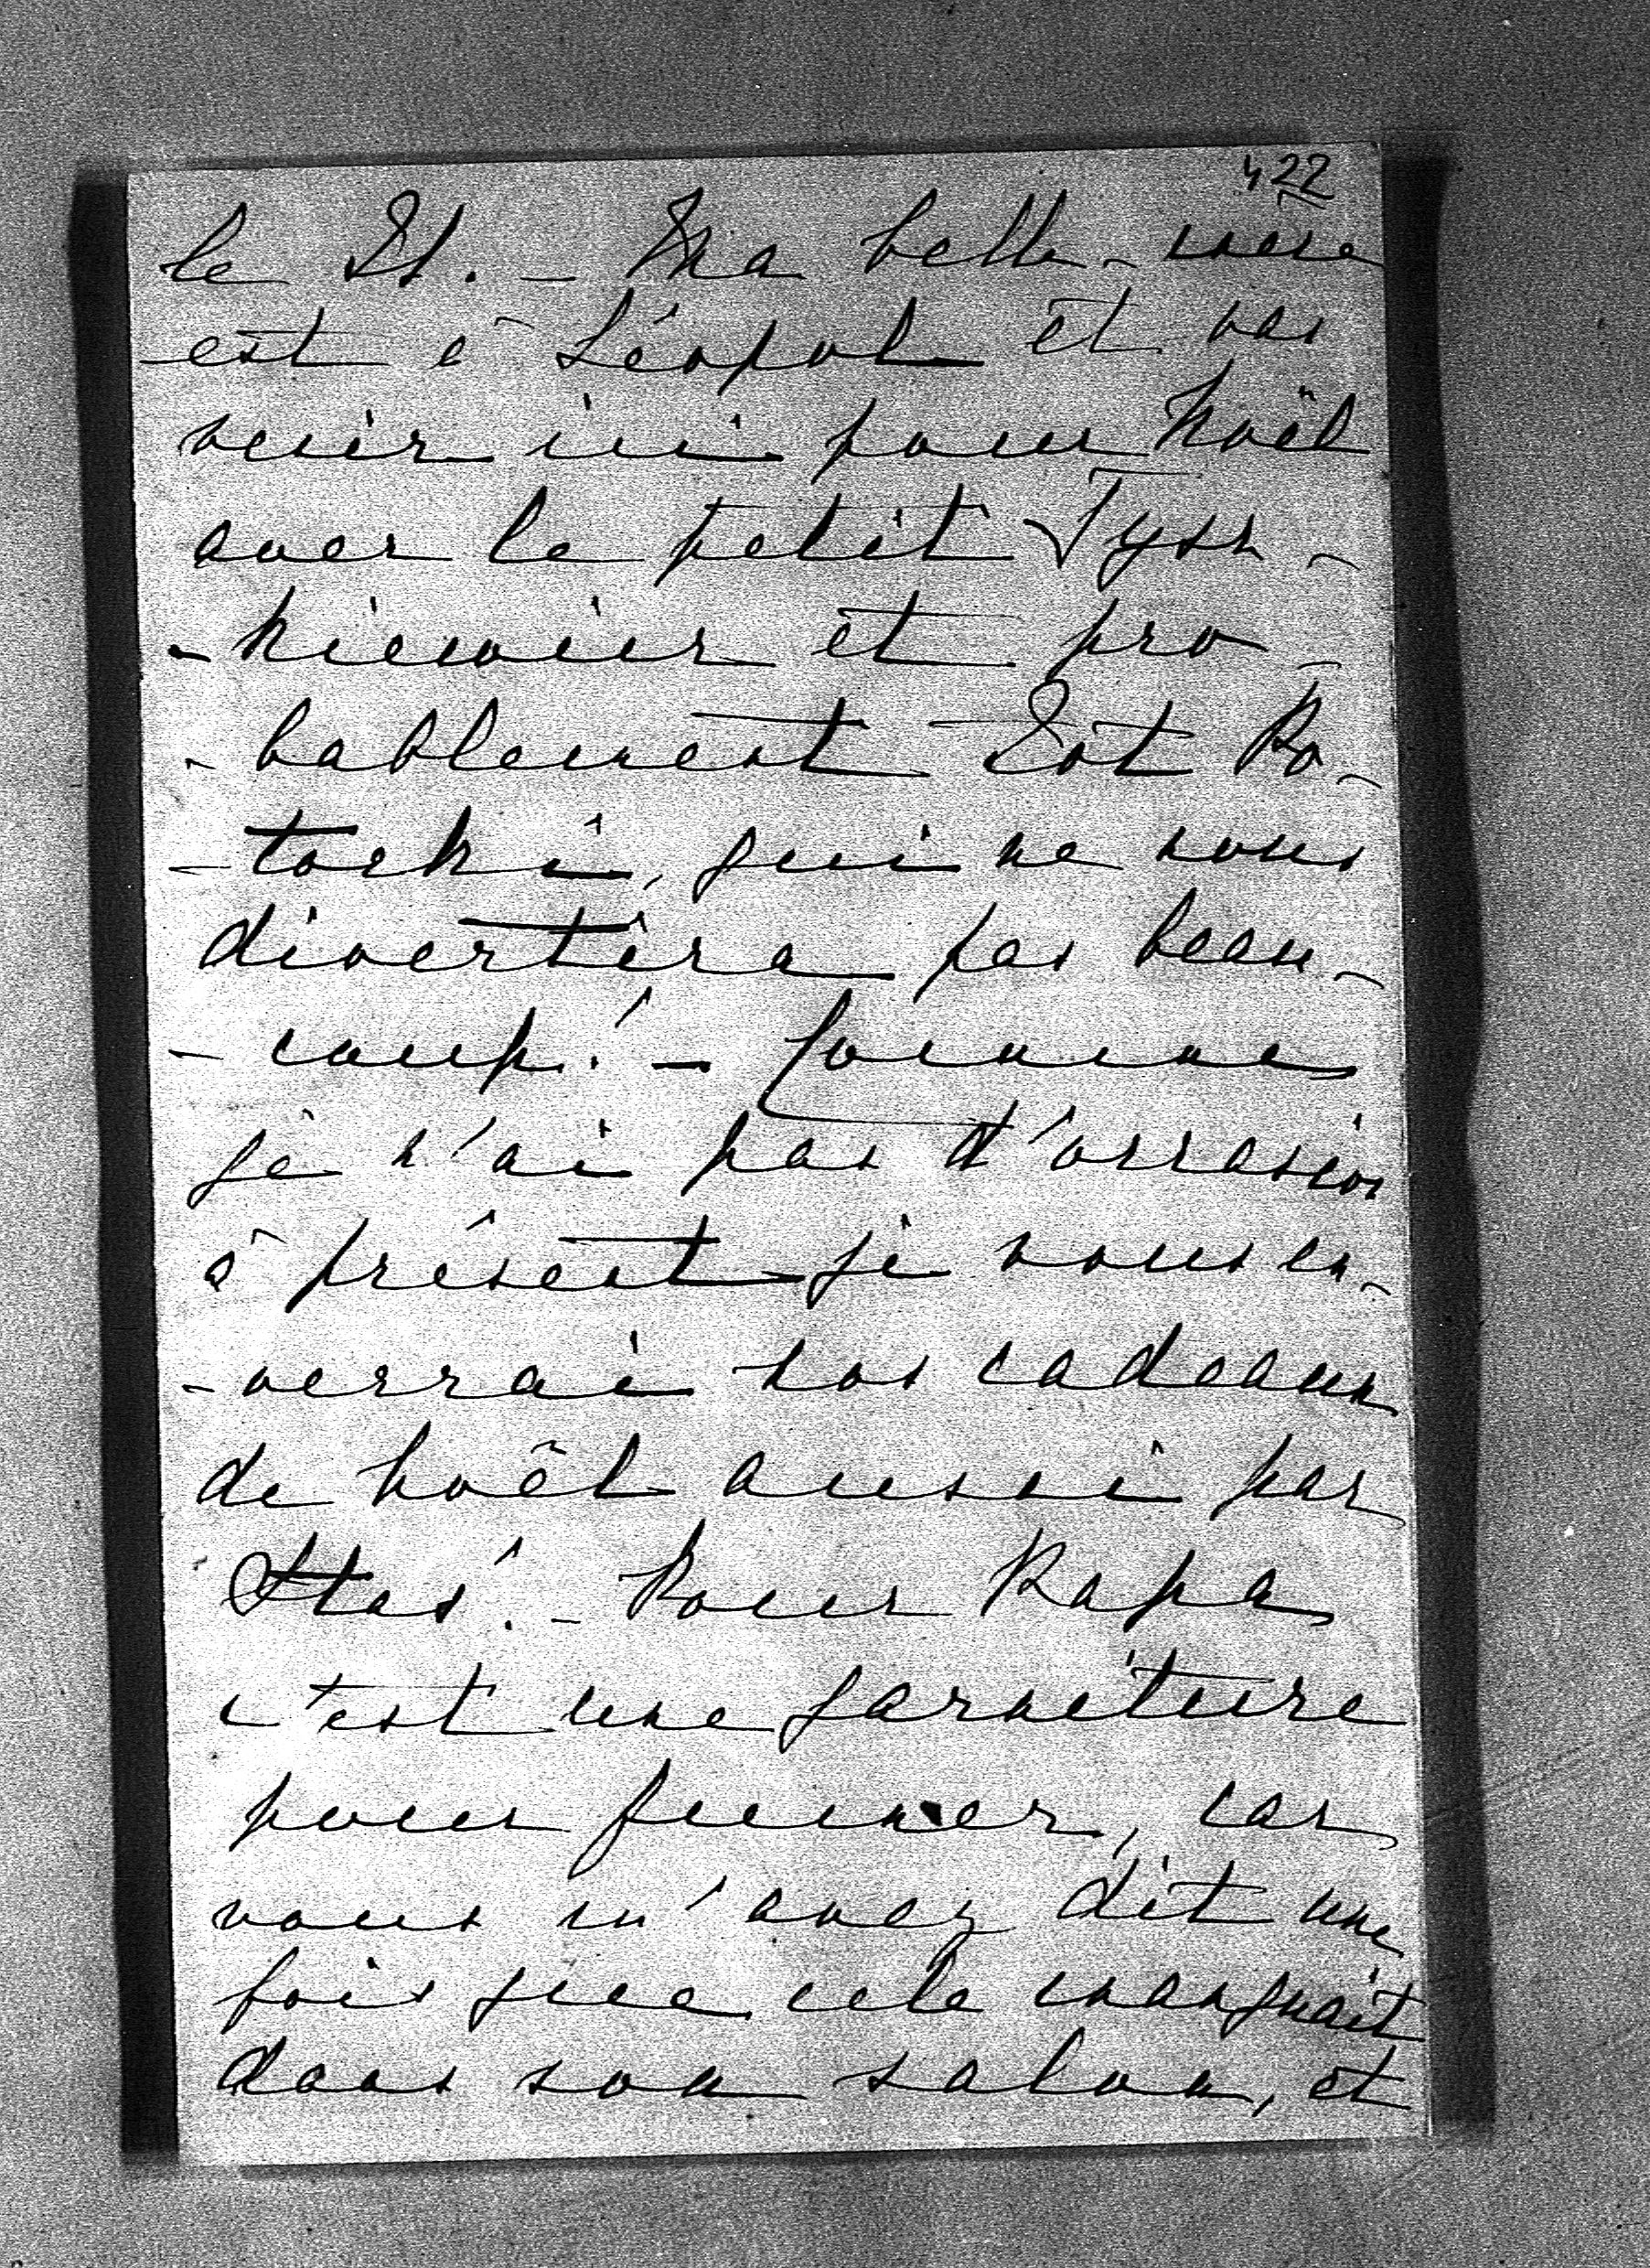 422
le 21. – Ma belle-mère
est à Léopol et va
venir ici pour Noël
avec le petit Tysz-
-kiewicz et pro-
-bablement Tot Po-
-tocki, qui ne nous
divertira pas beau-
-coup! – Comme
je n'ai pas d'occasion
à présent je vous en-
-verrai nos cadeaux
de Noël aussi par
Staś. – Pour Papa
c'est une garniture
pour fumer, car
vous m'avez dit une
fois que cela manquait
dans son salon, et